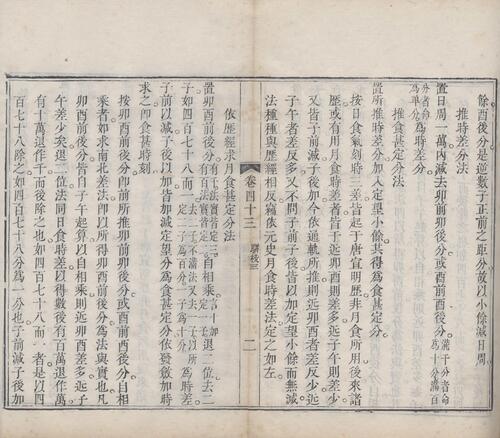 餘酉後分是逆數子正前之距分故以小餘減日周
推時差分法
置日周一萬內減去卯前卯後分或酉前酉後分
滿千分者命為十分滿百
分者命為單分
為時差分
推食甚定分法
置所推時差分加入定望小餘共得為食甚定分
按日食氣刻時三差皆起于唐宣明歷非月食所用後來諸
歷或有用月食時差者皆于近卯酉前後
又皆子前減子後加今依通軌所推則近卯酉差少近
子午者差反多又不問子前子後皆以加定望小餘而無減
法種種與歷經相反竊依元史月食時差法定之如左
卷四十三
二
依歷經求月食甚定分法
置卯酉前後分
自相乘
退二位去二
子如四百七十八而一
為時差
子前以減子後以加皆加減定望分為食甚定分依發斂加時
求之即食甚時刻
按卯酉前後分即前所推卯前卯後分或酉前酉後分自相
乘者如求南北差法即以所得卯酉前後分為法與實也凡
卯酉前後分皆自子午起算以自相乘則近卯酉差多近子
午差少矣退二位法同日食時差以得數後有百萬退作萬
有十萬退作千而後除之也如四百七十八而一者是以四
百七十八除之如四百七十八分為一分也子前減子後加